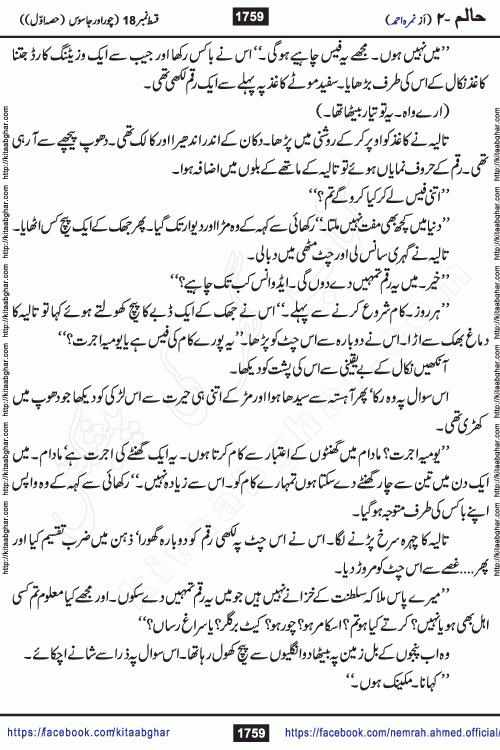 حالم ۔۲ (از نمرہ احمد) 1759 قسط نمبر 18 (چور اور جاسوس (حصہ اوّل))
’’میں نہیں ہوں۔ مجھے یہ فیس چاہیے ہوگی۔‘‘ اس نے باکس رکھا اور جیب سے ایک وزیٹنگ کارڈ جتنا
کاغذ نکال کے اس کی طرف بڑھایا۔ سفید موٹے کاغذ پہ پہلے سے ایک رقم لکھی تھی۔
(ارے واہ۔ یہ تو تیار بیٹھا تھا۔)
تالیہ نے کاغذ کو اوپر کر کے روشنی میں پڑھا۔ دکان کے اندر اندھیرا اور کالک تھی۔ دھوپ پیچھے سے آرہی
تھی۔ رقم کے حروف نمایاں ہوئے تو تالیہ کے ماتھے کے بلوں میں اضافہ ہوا۔
’’اتنی فیس لے کر کیا کرو گے تم؟‘‘
’’دنیا میں کچھ بھی مفت نہیں ملتا۔‘‘ رکھائی سے کہہ کے وہ مڑا اور دیوار تک گیا۔ پھر جھک کے ایک پیچ کس اٹھایا۔
تالیہ نے گہری سانس لی اور چٹ مٹھی میں دبالی۔
’’خیر۔ میں یہ رقم تمہیں دے دوں گی۔ ایڈوانس کب تک چاہیے؟‘‘
’’ہر روز۔ کام شروع کرنے سے پہلے۔‘‘ اس نے جھک کے ایک ڈبے کا پیچ کھولتے ہوئے کہا تو تالیہ کا
دماغ بھک سے اڑا۔ اس نے دوبارہ سے اس چٹ کو پڑھا۔ ’’یہ پورے کام کی فیس ہے یا یومیہ اجرت؟‘‘
آنکھیں نکال کے بے یقینی سے اس کی پشت کو دیکھا۔
اس سوال پہ وہ رکا‘ پھر آہستہ سے سیدھا ہوا اور مڑ کے اتنی ہی حیرت سے اس لڑکی کو دیکھا جو دھوپ میں
کھڑی تھی۔
’’یومیہ اجرت؟ مادام میں گھنٹوں کے اعتبار سے کام کرتا ہوں۔ یہ ایک گھنٹے کی اجرت ہے‘ مادام۔ میں
ایک دن میں تین سے چار گھنٹے دے سکتا ہوں تمہارے کام کو۔ اس سے زیادہ نہیں۔‘‘ رکھائی سے کہہ کے وہ واپس
اپنے باکس کی طرف متوجہ ہوگیا۔
تالیہ کا چہرہ سرخ پڑنے لگا۔ اس نے اس چٹ پہ لکھی رقم کو دوبارہ گھورا‘ ذہن میں ضرب تقسیم کیا اور
پھر.....غصے سے اس چٹ کو مروڑ دیا۔
’’میرے پاس ملاکہ سلطنت کے خزانے نہیں ہیں جو میں یہ رقم تمہیں دے سکوں۔ اور مجھے کیا معلوم تم کسی
اہل بھی ہو یا نہیں؟ کرتے کیا ہو تم؟ اسکامر ہو؟ چور ہو؟ کیٹ برگلر؟ یا سراغ رساں؟‘‘
وہ اب پنجوں کے بل زمین پہ بیٹھا دو انگلیوں سے پیچ کھول رہا تھا۔ اس سوال پہ ذرا سے شانے اچکائے۔
’’کہا نا۔ مکینک ہوں۔‘‘
https://facebook.com/kitaabghar 1759 https://facebook.com/nemrah.ahmed.official/
http://kitaabghar.com